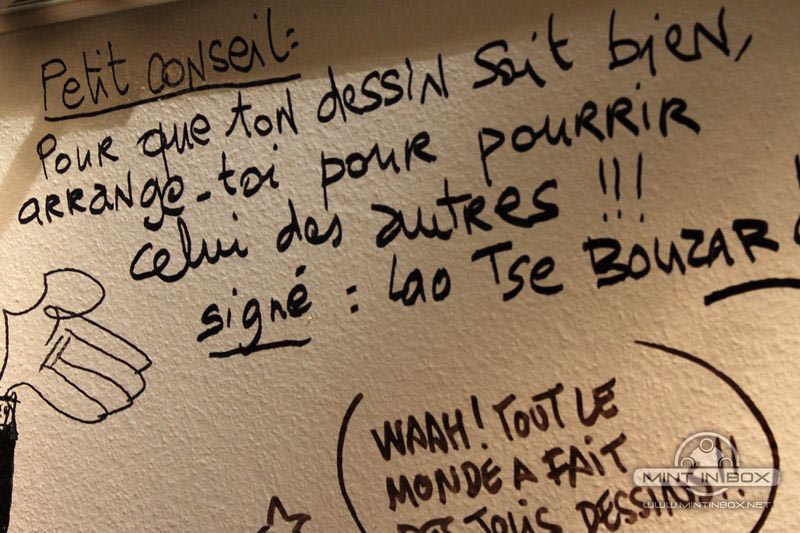 Petit conseil:
Pour que ton dessin soit bien,
arrange-toi pour pourrir
celui des autres !!!
signé : Lao Tse BOUZAR
WAAH! TOUT LE
MONDE A FAIT
DES JOLIS DESSINS!!
MINT IN BOX
WWW.MINTINBOX.NET